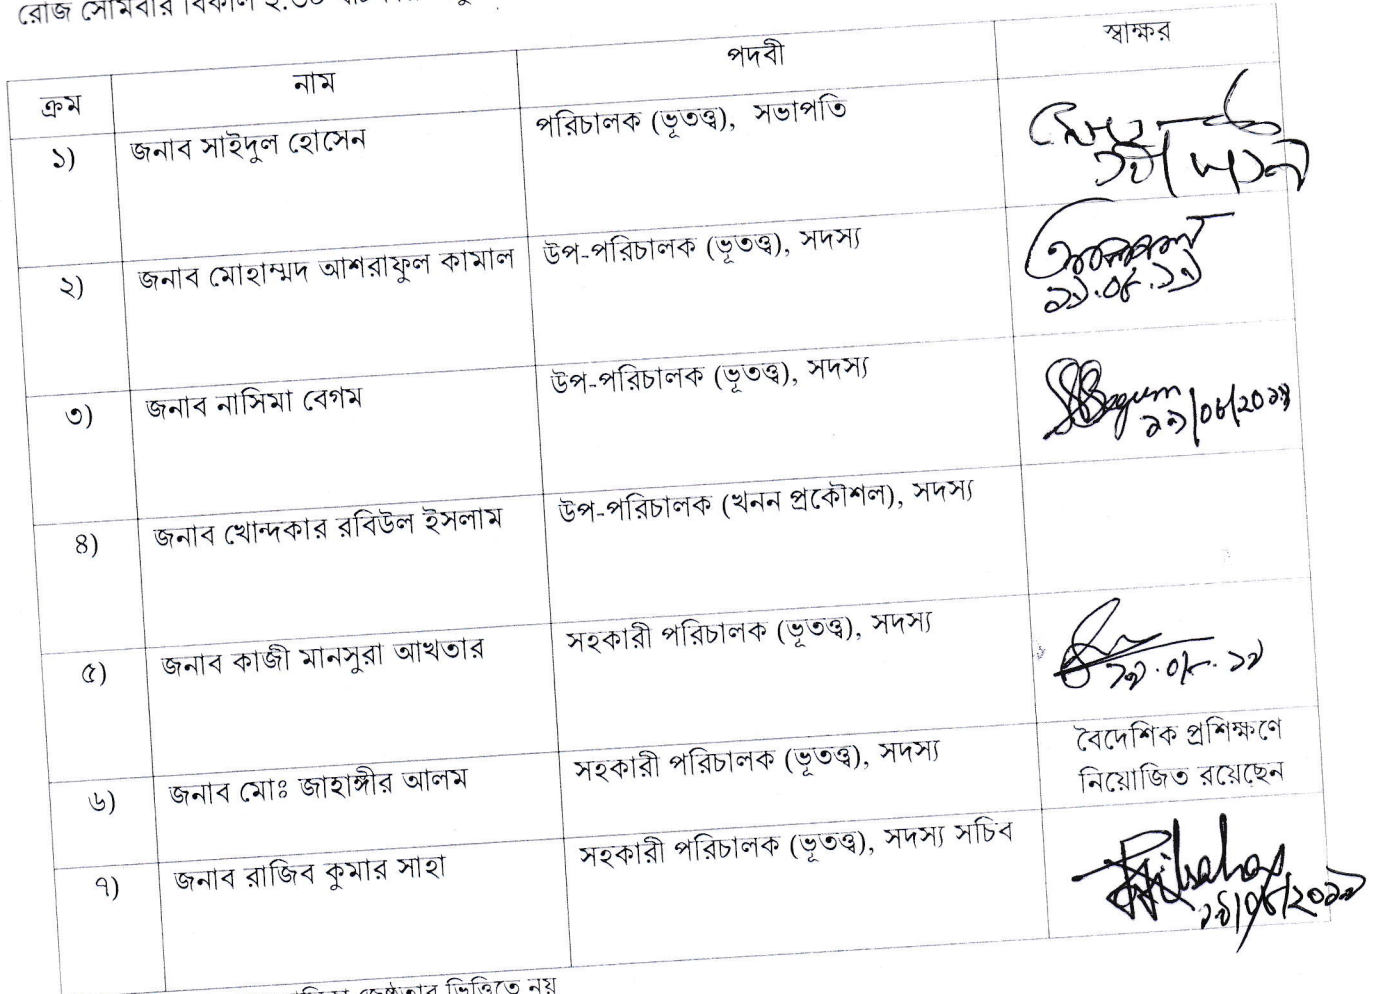 রোজ সোমবার বিকাল
ক্রম নাম পদবী স্বাক্ষর
১) জনাব সাইদুল হোসেন পরিচালক (ভূতত্ত্ব), সভাপতি
২) জনাব মোহাম্মদ আশরাফুল কামাল উপ-পরিচালক (ভূতত্ত্ব), সদস্য
২১.০৮.২১
৩) জনাব নাসিমা বেগম উপ-পরিচালক (ভূতত্ত্ব), সদস্য
Begum
৪) জনাব খোন্দকার রবিউল ইসলাম উপ-পরিচালক (খনন প্রকৌশল), সদস্য
৫) জনাব কাজী মানসুরা আখতার সহকারী পরিচালক (ভূতত্ত্ব), সদস্য
৬) জনাব মোঃ জাহাঙ্গীর আলম সহকারী পরিচালক (ভূতত্ত্ব), সদস্য বৈদেশিক প্রশিক্ষণে
নিয়োজিত রয়েছেন
৭) জনাব রাজিব কুমার সাহা সহকারী পরিচালক (ভূতত্ত্ব), সদস্য সচিব
ভিত্তিতে নয়